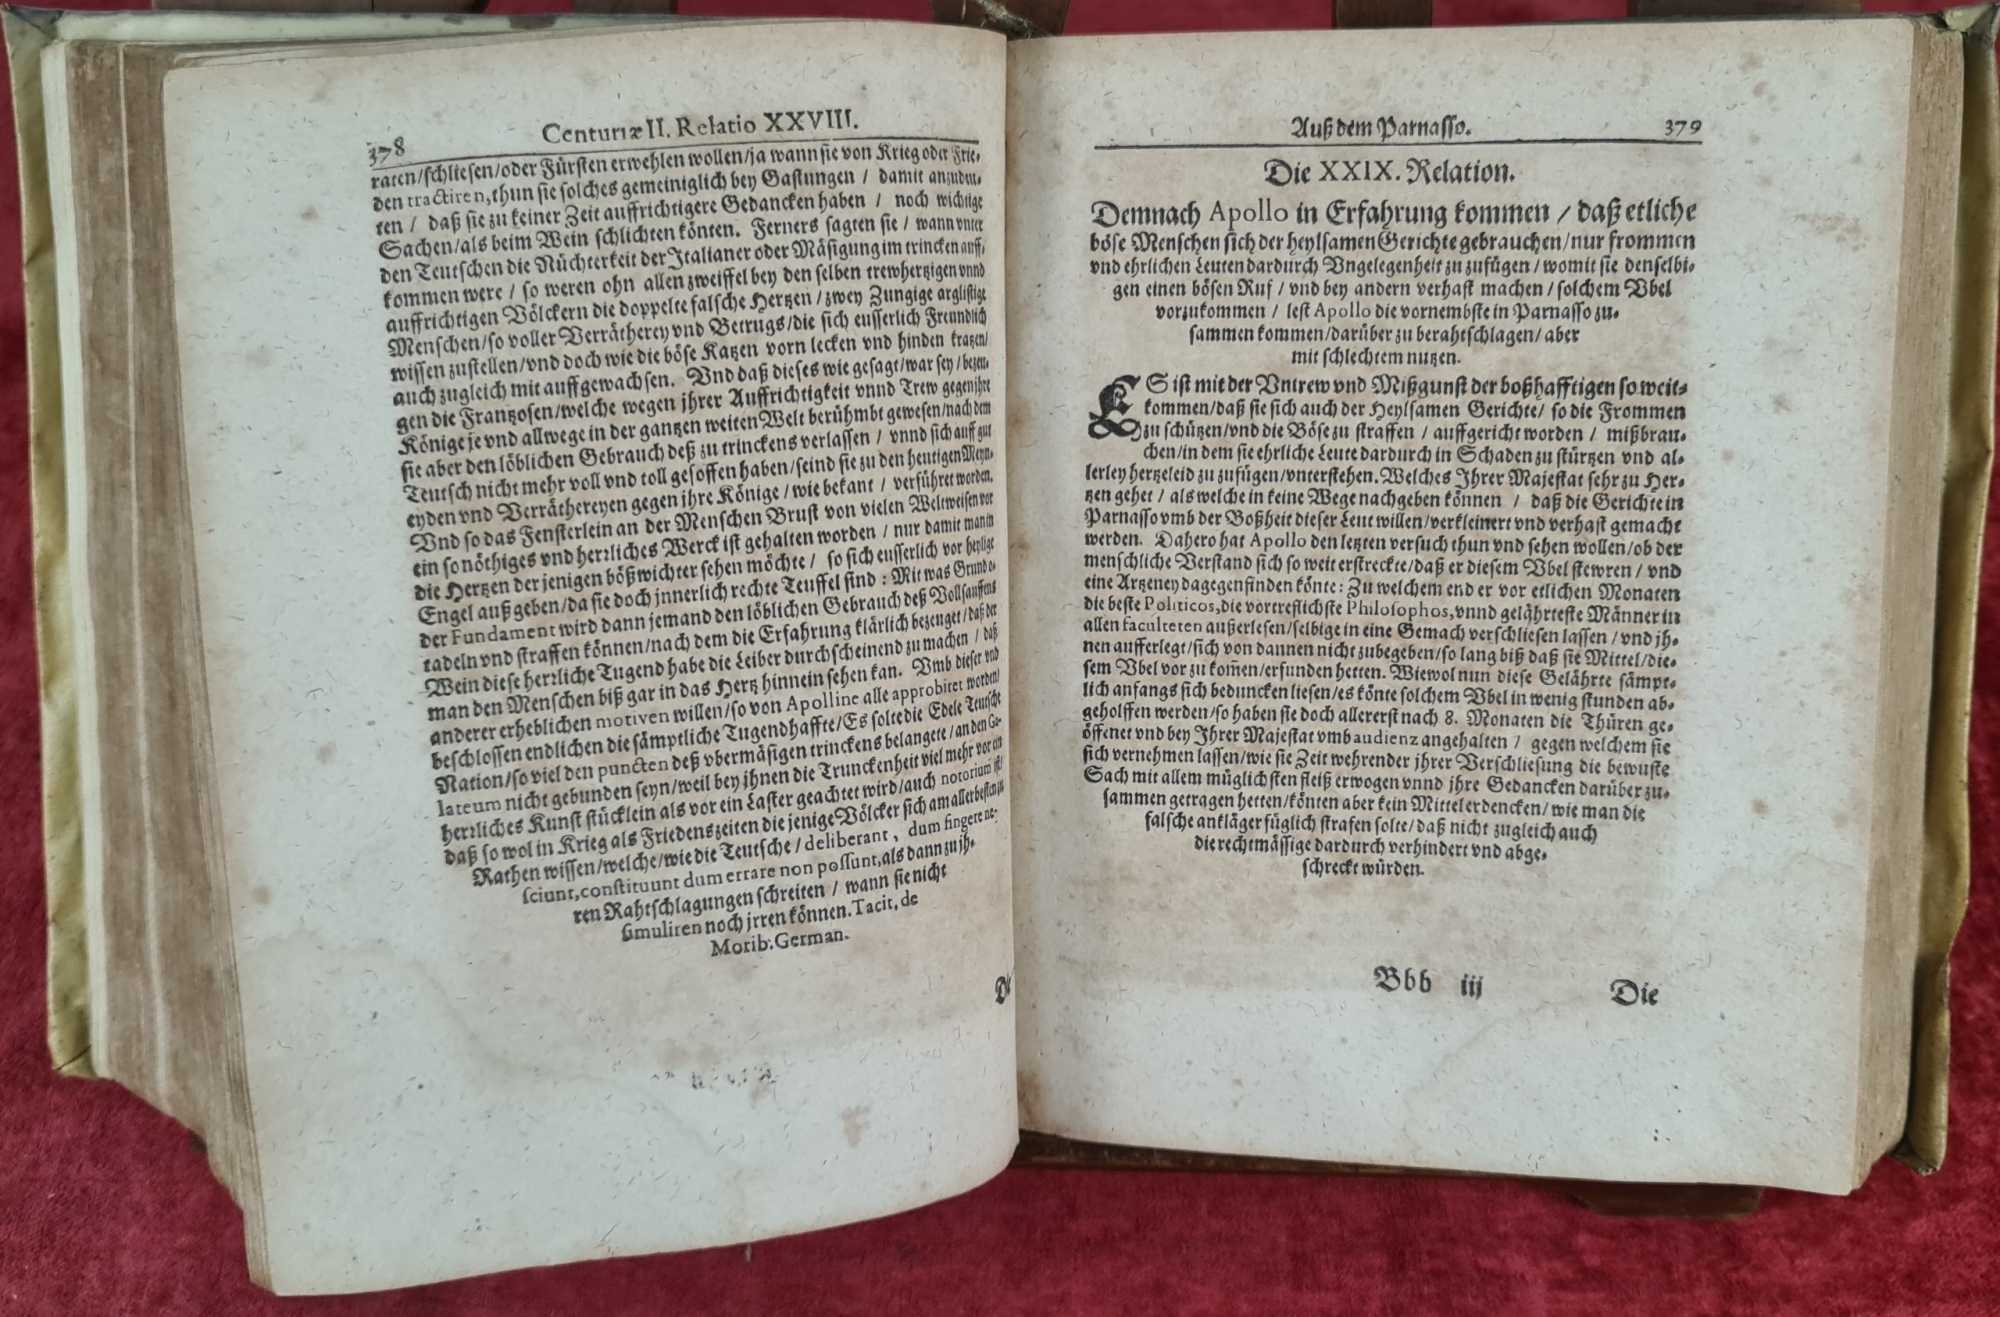 378 Centuriæ II. Relatio XXVIII.
raten/schliesen/oder Fürsten erwehlen wollen/ja wann sie von Krieg oder Frie-
den tractiren, thun sie solches gemeiniglich bey Gastungen / damit anzudeu-
ten / daß sie zu keiner Zeit auffrichtigere Gedancken haben / noch wichtige
Sachen/als beim Wein schlichten könten. Ferners sagten sie / wann vnter
den Teutschen die Nüchterkeit der Italianer oder Mäsigung im trincken auff-
kommen were / so weren ohn allen zweiffel bey den selben trewhertzigen vnnd
auffrichtigen Völckern die doppelte falsche Hertzen / zwey Zungige arglistige
Menschen/so voller Verrätherey vnd Betrugs/die sich eusserlich Freundlich
wissen zustellen/vnd doch wie die böse Katzen vorn lecken vnd hinden kratzen/
auch zugleich mit auffgewachsen. Vnd daß dieses wie gesagt/war sey / bezeu-
gen die Frantzosen/welche wegen jhrer Auffrichtigkeit vnnd Trew gegen jhre
Könige je vnd allwege in der gantzen weiten Welt berühmbt gewesen/nach dem
sie aber den löblichen Gebrauch deß zu trinckens verlassen / vnnd sich auff gut
Teutsch nicht mehr voll vnd toll gesoffen haben/seind sie zu den heutigen Meyn-
eyden vnd Verräthereyen gegen jhre Könige / wie bekant / verführet worden.
Vnd so das Fensterlein an der Menschen Brust von vielen Weltweisen vor
ein so nöthiges vnd herrliches Werck ist gehalten worden / nur damit man in
die Hertzen der jenigen bößwichter sehen möchte / so sich eusserlich vor heylige
Engel außgeben/da sie doch jnnerlich rechte Teuffel sind : Mit was Grund o-
der Fundament wird dann jemand den löblichen Gebrauch deß Vollsauffens
tadeln vnd straffen können/nach dem die Erfahrung klärlich bezeuget/daß der
Wein diese herrliche Tugend habe die Leiber durchscheinend zu machen / daß
man den Menschen biß gar in das Hertz hinnein sehen kan. Vmb dieser vnd
anderer erheblichen motiven willen/so von Apolline alle approbiret worden/
beschlossen endlichen die sämptliche Tugendhaffte/Es solte die Edele Teutsche
Nation/so viel den puncten deß vbermäsigen trinckens belangete/an den Ge-
lateum nicht gebunden seyn/weil bey jhnen die Trunckenheit viel mehr vor ein
herrliches Kunst stücklein als vor ein Laster geachtet wird/auch notorium ist/
daß so wol in Krieg als Friedenszeiten die jenige Völcker sich am allerbesten zu
Rathen wissen/welche/wie die Teutsche / deliberant, dum fingere ne-
sciunt, constituunt dum errare non possunt, als dann zu jh-
ren Rahtschlagungen schreiten / wann sie nicht
simuliren noch jrren können. Tacit, de
Morib. German.
Auß dem Parnasso. 379
Die XXIX. Relation.
Demnach Apollo in Erfahrung kommen / daß etliche
böse Menschen sich der heylsamen Gerichte gebrauchen/nur frommen
vnd ehrlichen Leuten dardurch Vngelegenheit zu zufügen / womit sie denselbi-
gen einen bösen Ruf / vnd bey andern verhast machen / solchem Vbel
vorzukommen / lest Apollo die vornembste in Parnasso zu-
sammen kommen/darüber zu berahtschlagen/ aber
mit schlechtem nutzen.
ES ist mit der Vntrew vnd Mißgunst der boßhafftigen so weit-
kommen/daß sie sich auch der Heylsamen Gerichte/ so die Frommen
zu schützen/vnd die Böse zu straffen / auffgericht worden / mißbrau-
chen/in dem sie ehrliche Leute dardurch in Schaden zu stürtzen vnd al-
lerley hertzeleid zu zufügen/vnterstehen. Welches Ihrer Majestat sehr zu Her-
tzen gehet / als welche in keine Wege nachgeben können / daß die Gerichte in
Parnasso vmb der Boßheit dieser Leut willen/verkleinert vnd verhast gemacht
werden. Dahero hat Apollo den letzten versuch thun vnd sehen wollen/ob der
menschliche Verstand sich so weit erstreckte/daß er diesem Vbel stewren / vnd
eine Artzeney dagegen finden könte: Zu welchem end er vor etlichen Monaten
die beste Politicos, die vortreflichste Philosophos, vnnd gelährteste Männer in
allen faculteten außerlesen/selbige in eine Gemach verschliesen lassen / vnd jh-
nen aufferlegt/sich von dannen nicht zubegeben/so lang biß daß sie Mittel/die-
sem Vbel vor zu kom̃en/erfunden hetten. Wiewol nun diese Gelährte sämpt-
lich anfangs sich beduncken liesen/es könte solchem Vbel in wenig stunden ab-
geholffen werden/so haben sie doch allererst nach 8. Monaten die Thüren ge-
öffenet vnd bey Ihrer Majestat vmb audienz angehalten / gegen welchem sie
sich vernehmen lassen/wie sie Zeit wehrender jhrer Verschliesung die bewuste
Sach mit allem müglichsten fleiß erwogen vnnd jhre Gedancken darüber zu-
sammen getragen hetten/könten aber kein Mittel erdencken/ wie man die
falsche ankläger füglich strafen solte/daß nicht zugleich auch
die rechtmässige dardurch verhindert vnd abge-
schreckt würden.
Bbb iij Die